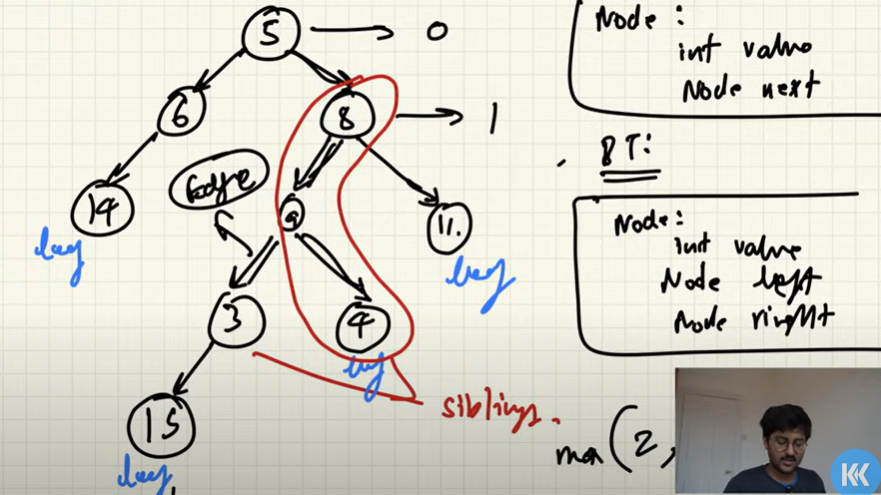 5 → 0
6
8 → 1
Edge
14
9
11.
leaf
leaf
3
4
leaf
15
leaf
siblings.
Node:
int value
Node next
BT:
Node:
int value
Node left
Node right
max(2,
KK